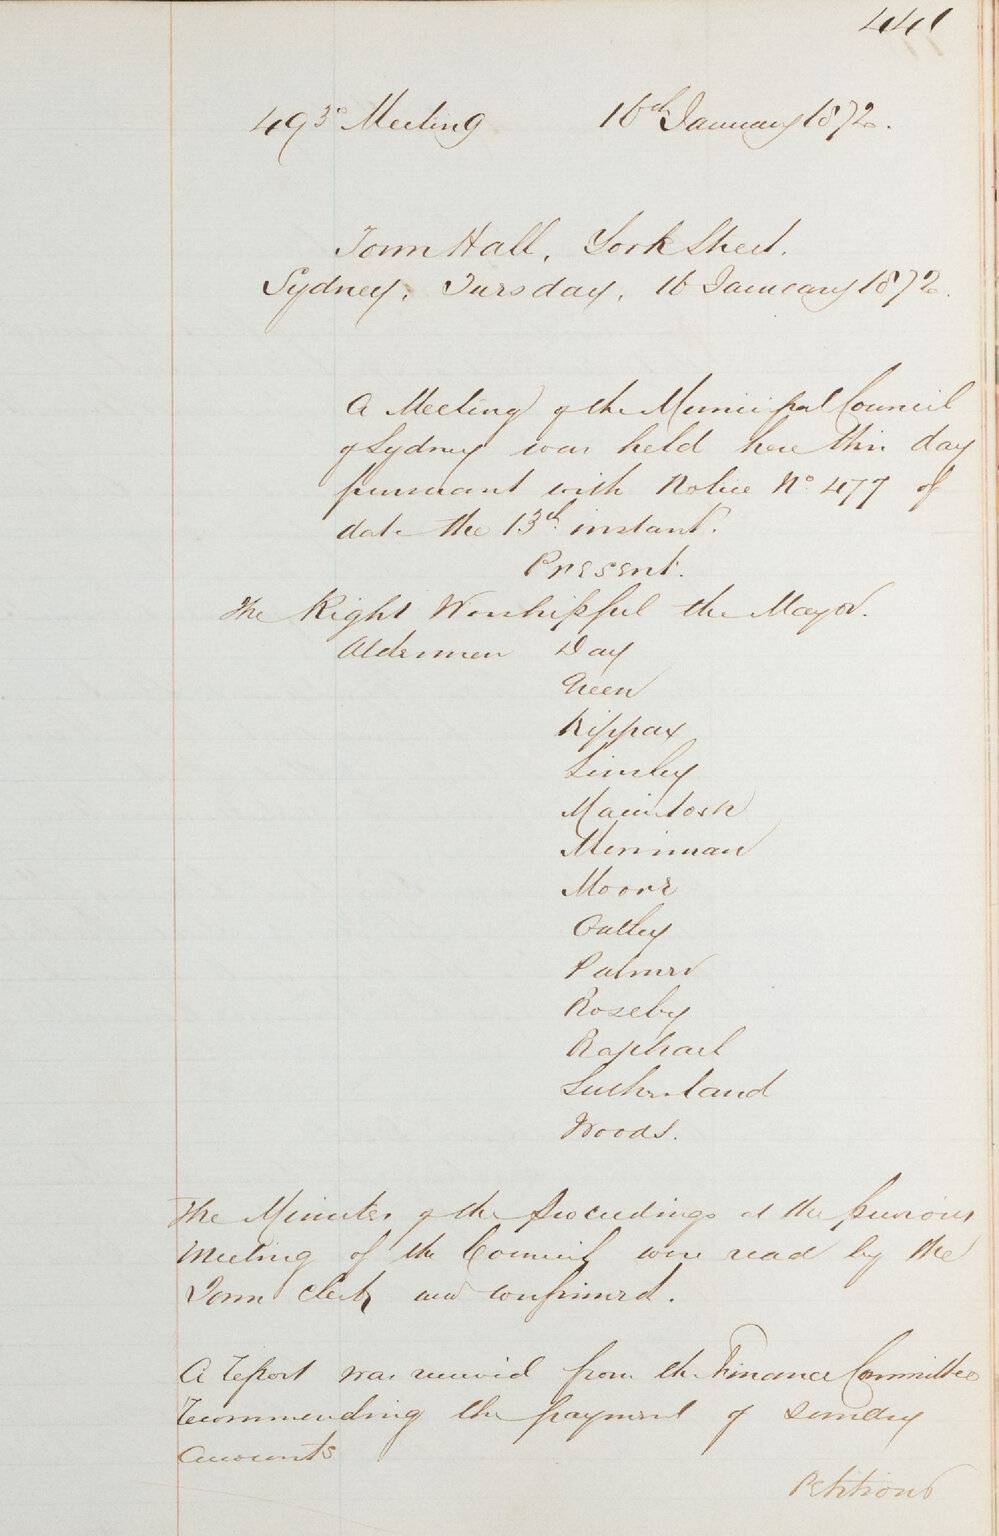 441
493d Meeting 16th January 1872.
Town Hall, York Street.
Sydney, Tuesday, 16 January 1872.
A Meeting of the Municipal Council
of Sydney was held here this day
pursuant with Notice No 477 of
date the 13th instant.
Present.
The Right Worshipful the Mayor.
Aldermen Day
Green
Kippax
Linsley
Macintosh
Merriman
Moore
Oatley
Palmer
Roseby
Raphael
Sutherland
Woods.
The Minutes of the Proceedings at the previous
Meeting of the Council were read by the
Town Clerk and confirmed.
A Report was received from the Finance Committee
Recommending the payment of sundry
amounts
Petitions